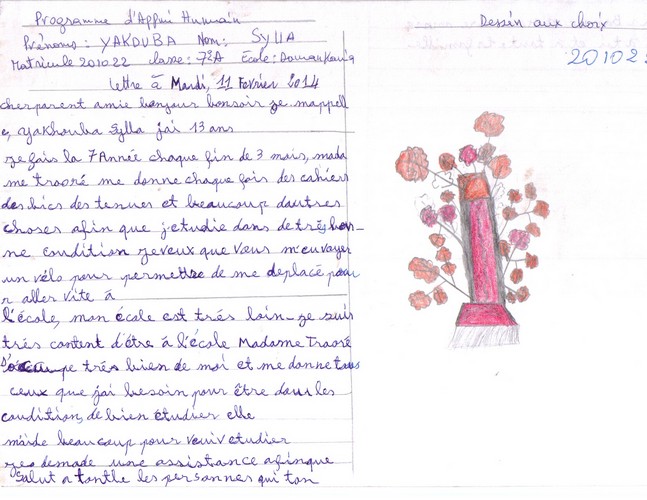 Programme d'Appui Humain
Prénoms : YAKOUBA Nom: Sylla
Matricule 201022 classe: 7è A École:
lettre à Mardi, 11 Fevrier 2014
cher parent amie bonjour bonsoir je mappell
e, yakhouba Sylla jai 13 ans
je fais la 7 Année chaque fin de 3 mois, mada
me traoré me donne chaque fois des cahiers
des bics des tenues et beaucoup dautres
choses afin que j'etudie dans de trés bon-
ne condition je veux que vous m'envoyer
un vélo pour permettre de me deplacé pou
r aller vite à
l'école, mon école est trés loin - je suis
trés content d'être à l'école Madame Traoré
pe trés bien de moi et me donne tous
ceux que jai besoin pour être dans les
condition, de bien étudier elle
m'aide beaucoup pour venir etudier
demade une assistance afin que
Salut a toutle les personnes qui ton
Dessin aux choix
20102